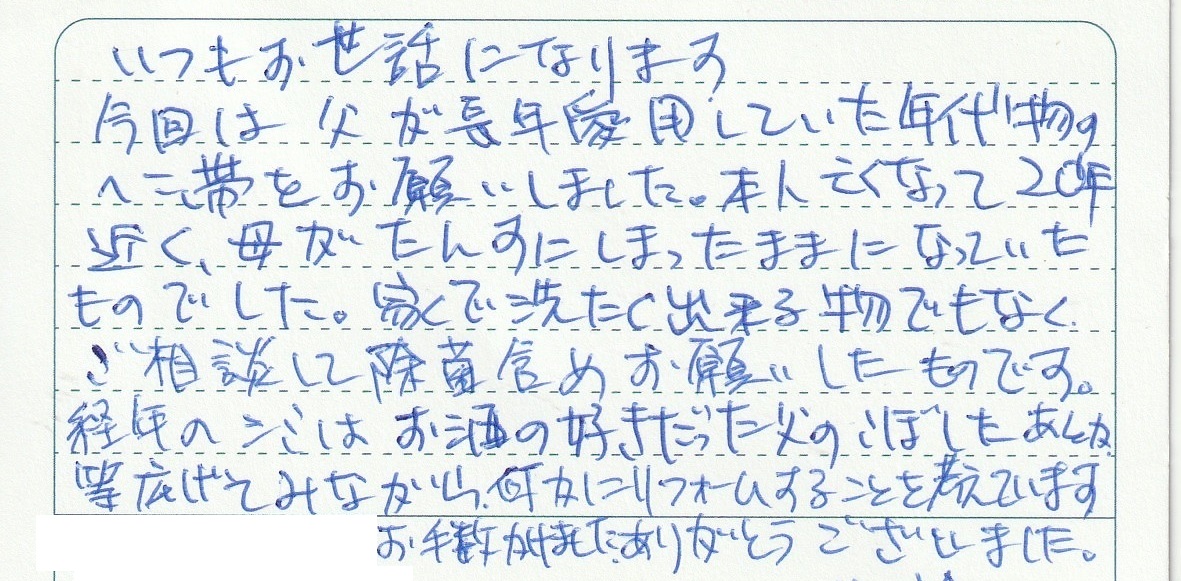 いつもお世話になります
今回は父が長年愛用していた年代物の
へこ帯をお願いしました。本人亡くなって20年
近く、母がたんすにしまったままになっていた
ものでした。家で洗たく出来る物でもなく、
ご相談して除菌含めお願いしたものです。
経年のシミはお酒の好きだった父のこぼしたあとか
等広げてみながら、何かにリフォームすることを考えています
お手数かけましたありがとうございました。